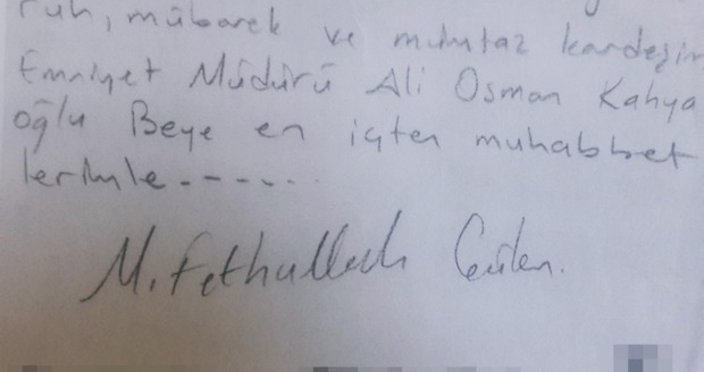 ruh, mübarek ve mumtaz kardeşim
Emniyet Müdürü Ali Osman Kahya
oğlu Beye en içten muhabbet
lerimle.------
M. Fethullah Gülen.